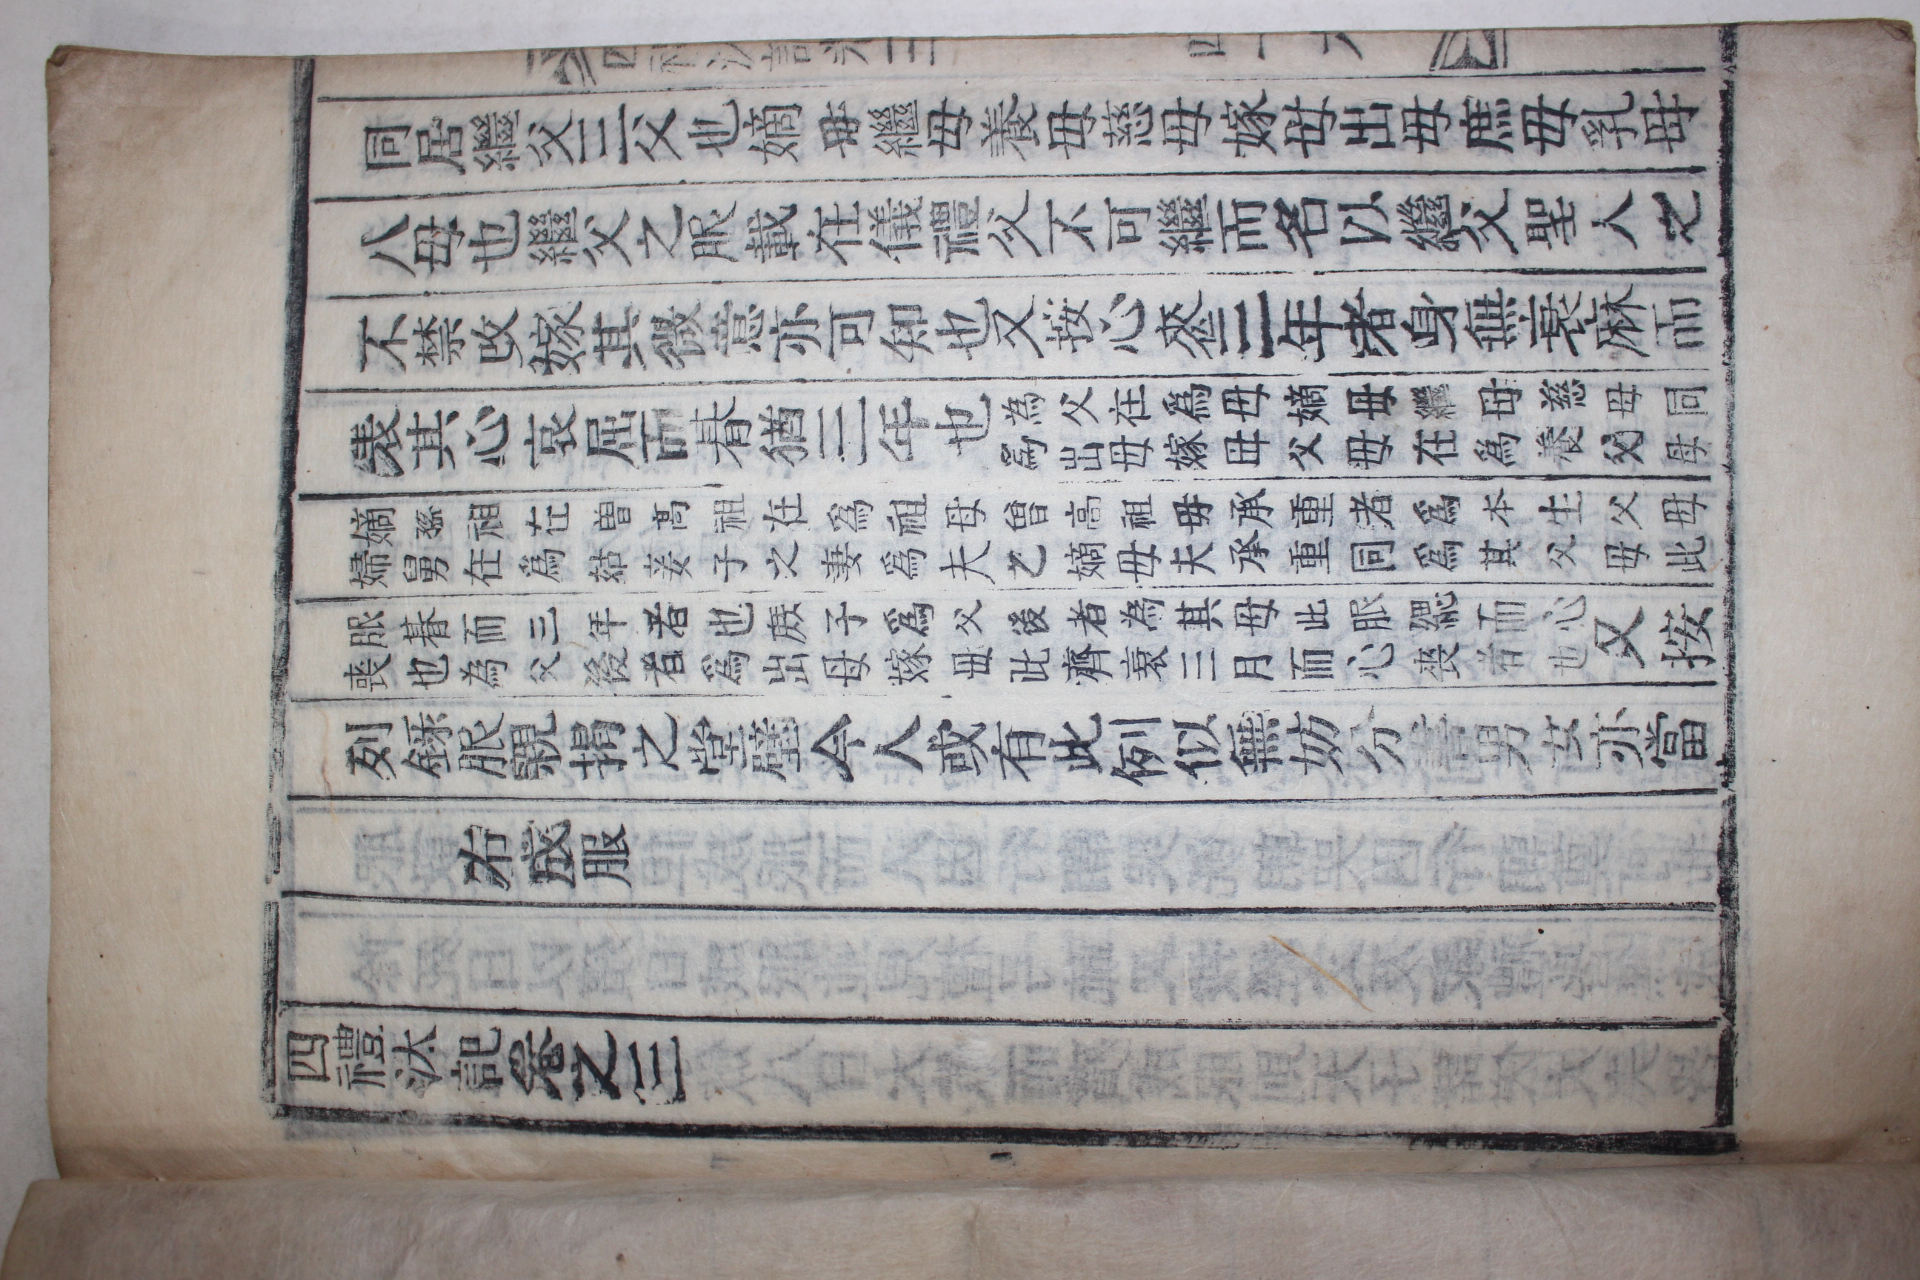 同居繼父三父也嫡母繼母養母慈母嫁母出母庶母乳母
八母也繼父之服載在儀禮父不可繼而名以繼父聖人之
不禁改嫁其微意亦可知也又按心喪三年者身無衰麻而
表其心哀屈而朞猶三年也
為父在爲母嫡母繼母慈母同
爲出母嫁母父母在爲養父母
嫡孫祖在曽高祖在為祖母曾高祖母承重者爲本生父母
婦舅在爲姑妾子之妻爲夫之嫡母夫承重同爲其父母此
服朞而三年者也庶子爲父後者為其母此服緦而心
喪也為父後者爲出母嫁母此齊衰三月而心喪者也
又按
列錄服親揭之堂壁今人或有此例似無妨分書男女亦當
右成服
四禮汰記卷之三
四禮汰記卷三
四十六